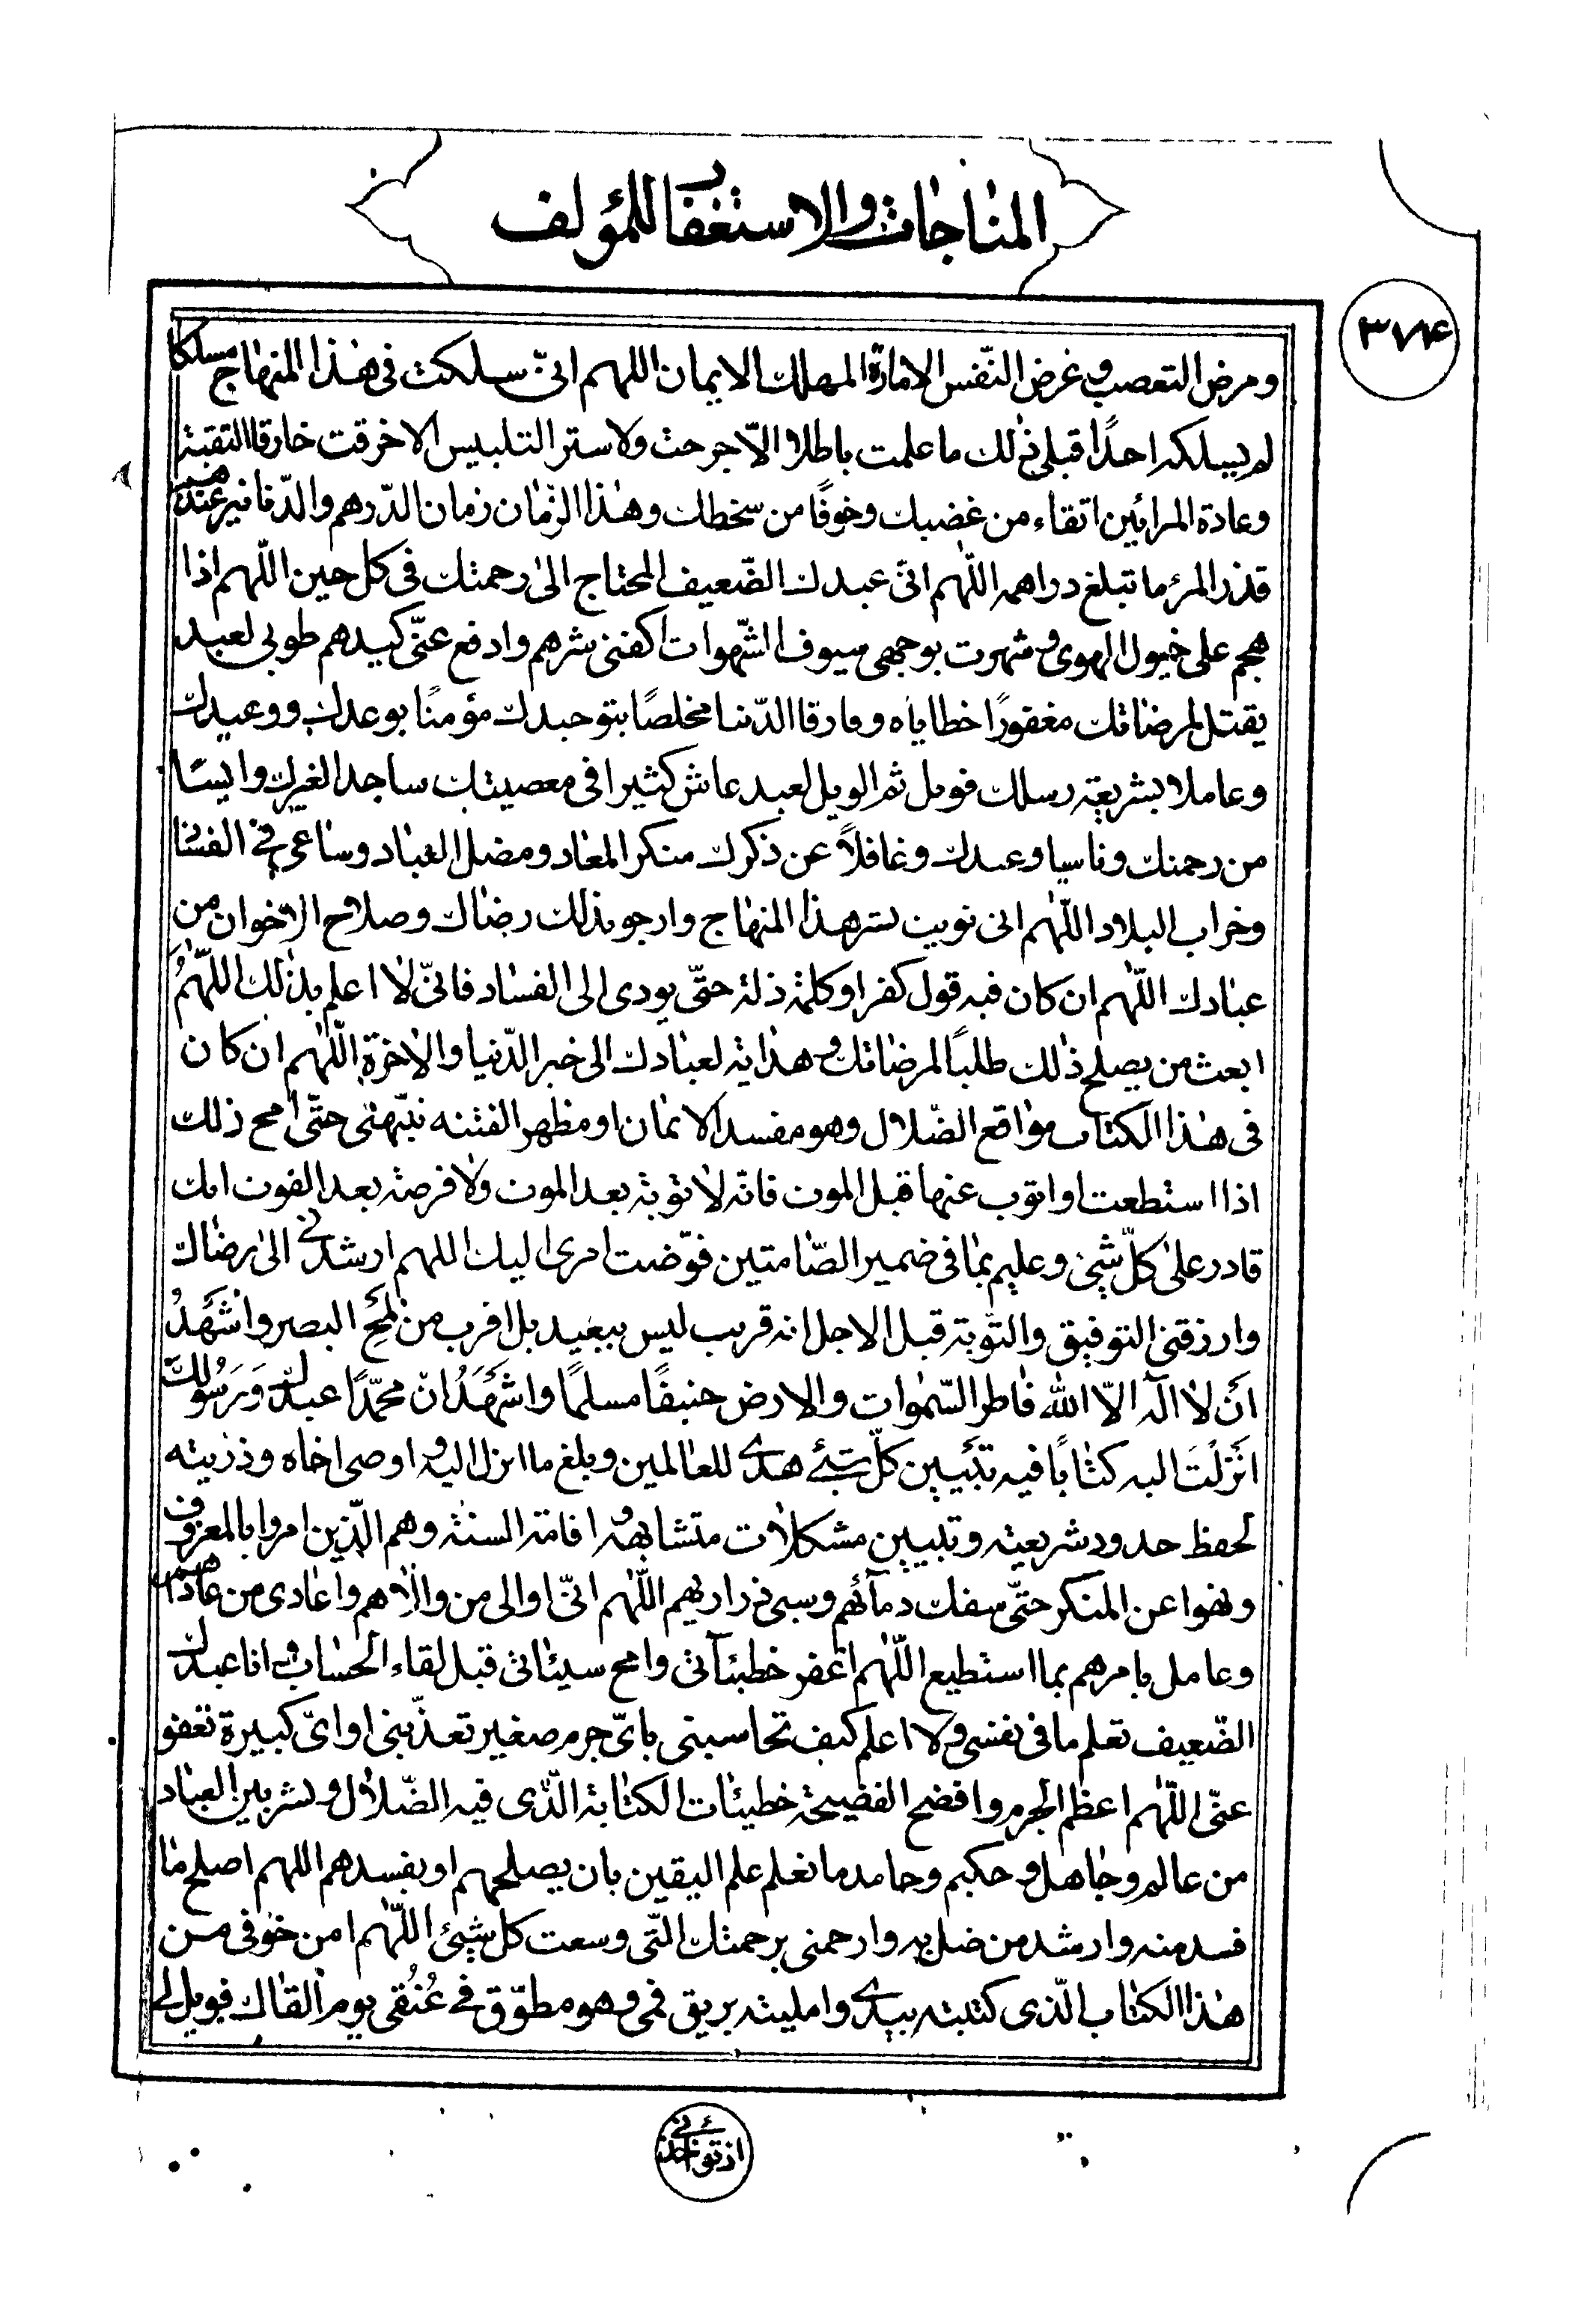 المناجات والاستغفار للمؤلف
٣٧٤
ومرض التعصب وغرض النّفس الامارة المهلك الايمان اللهم انّى سلكت فى هٰذا المنهاج مسلكا
لم يسلكه احدًا قبلى ذٰلك ما علمت باطلا الّا جرحت ولا ستر التلبيس الا خرقت خارقا التقية
وعادة المرائين اتقاء من غضبك وخوفًا من سخطك وهٰذا الزّمان زمان الدّرهم والدّنانير عندهم
قدر المرٔ ما تبلغ دراهمه اللّٰهم انّى عبدك الضّعيف المحتاج الىٰ رحمتك فى كل حين اللّهم اذا
هجم على خيول الهوى وشهرت بوجهى سيوف الشّهوات اكفنى شرهم وادفع عنّى كيدهم طوبى لعبد
يقتل لمرضاتك مغفورًا خطاياه ومفارقا الدّنيا مخلصًا بتوحيدك مؤمنًا بوعدك ووعيدك
وعاملا بشريعة رسلك فويل ثم الويل لعبد عاش كثيرا فى معصيتك ساجدا لغيرك وايسًا
من رحمتك وناسيا وعدك وغافلاً عن ذكرك منكر المعاد ومضل العباد وساعى فى الفساد
وخراب البلاد اللّٰهم انى نويت بستر هذا المنهاج وارجو بذلك رضاك وصلاح الاخوان من
عبادك اللّٰهم ان كان فيه قول كفر او كلمة ذلة حتّى يودى الى الفساد فانّى لا اعلم بذٰلك اللّٰهمُ
ابعث من يصلح ذٰلك طلبًا لمرضاتك وهداية لعبادك الى خير الدّنيا والاخرة اللّٰهم ان كان
فى هٰذا الكتاب مواقع الضّلال وهو مفسد الايمان او مظهر الفتنه نبّهنى حتّى امح ذلك
اذا استطعت او اتوب عنها قبل الموت فانّه لا توبة بعد الموت ولا فرصة بعد الفوت انك
قادر علىٰ كلّ شئ وعليم بما فى ضمير الصّامتين فوّضت امرى اليك اللهم ارشدنى الىٰ رضاك
وارزقنى التوفيق والتّوبة قبل الاجل انه قريب ليس ببعيد بل اقرب من لمَحِ البصر واشَهدُ
اَنَ لا اله الّا اللّٰه فاطر السّمٰوات والارض حنيفًا مسلمًا واشَهَدُ انّ محمّدًا عبدك وَرَسُولك
انَزَلْتَ اليه كتابًا فيه تَبيين كلّ شئ هدى للعالمين وبلغ ما انزل اليه واوصى اخاه وذريته
لحفظ حدود شريعته وتبيين مشكلات متشابهه واقامة السنة وهم الّذين امروا بالمعروف
ونهوا عن المنكر حتّى سفك دمآئهم وسبى ذراريهم اللّٰهم انّى اوالى من والاهم واعادى من عاداهم
وعامل بامرهم بما استطيع اللّٰهم اغفر خطيئآتى وامح سيئاتى قبل لقاء الحساب وانا عبدك
الضّعيف تعلم ما فى نفسى ولا اعلم كيف تحاسبنى باىّ جرم صغير تعذّبنى او اىّ كبيرة تغفو
عنّى اللّٰهم اعظم الجرم وافضح الفضيحة خطيئات الكتابة الّذى فيه الضّلال ونشر بين العباد
من عالم وجاهل وحكيم وجامد ما تعلم علم اليقين بان يصلحهم او يفسدهم اللهم اصلح ما
فسد منه وارشد من ضل به وارحمنى برحمتك الّتى وسعت كل شئ اللّٰهم امن خوفى من
هٰذا الكتاب الّذى كتبته بيدى وامليته بريق فمى وهو مطوّق فى عُنُقى يوم القاك فويل لى